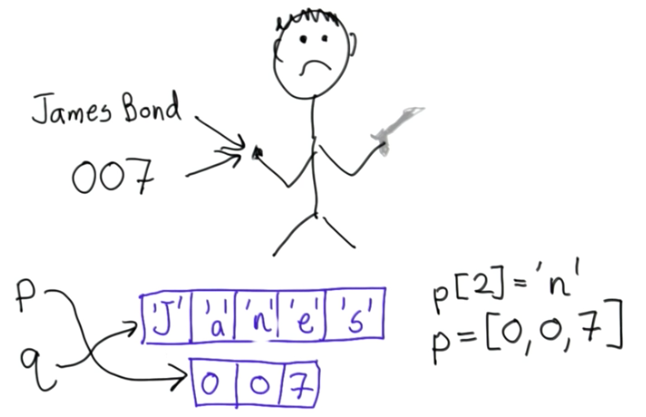 James Bond
007
p
q
'J' 'a' 'n' 'e' 's'
0 0 7
p[2]='n'
p=[0,0,7]